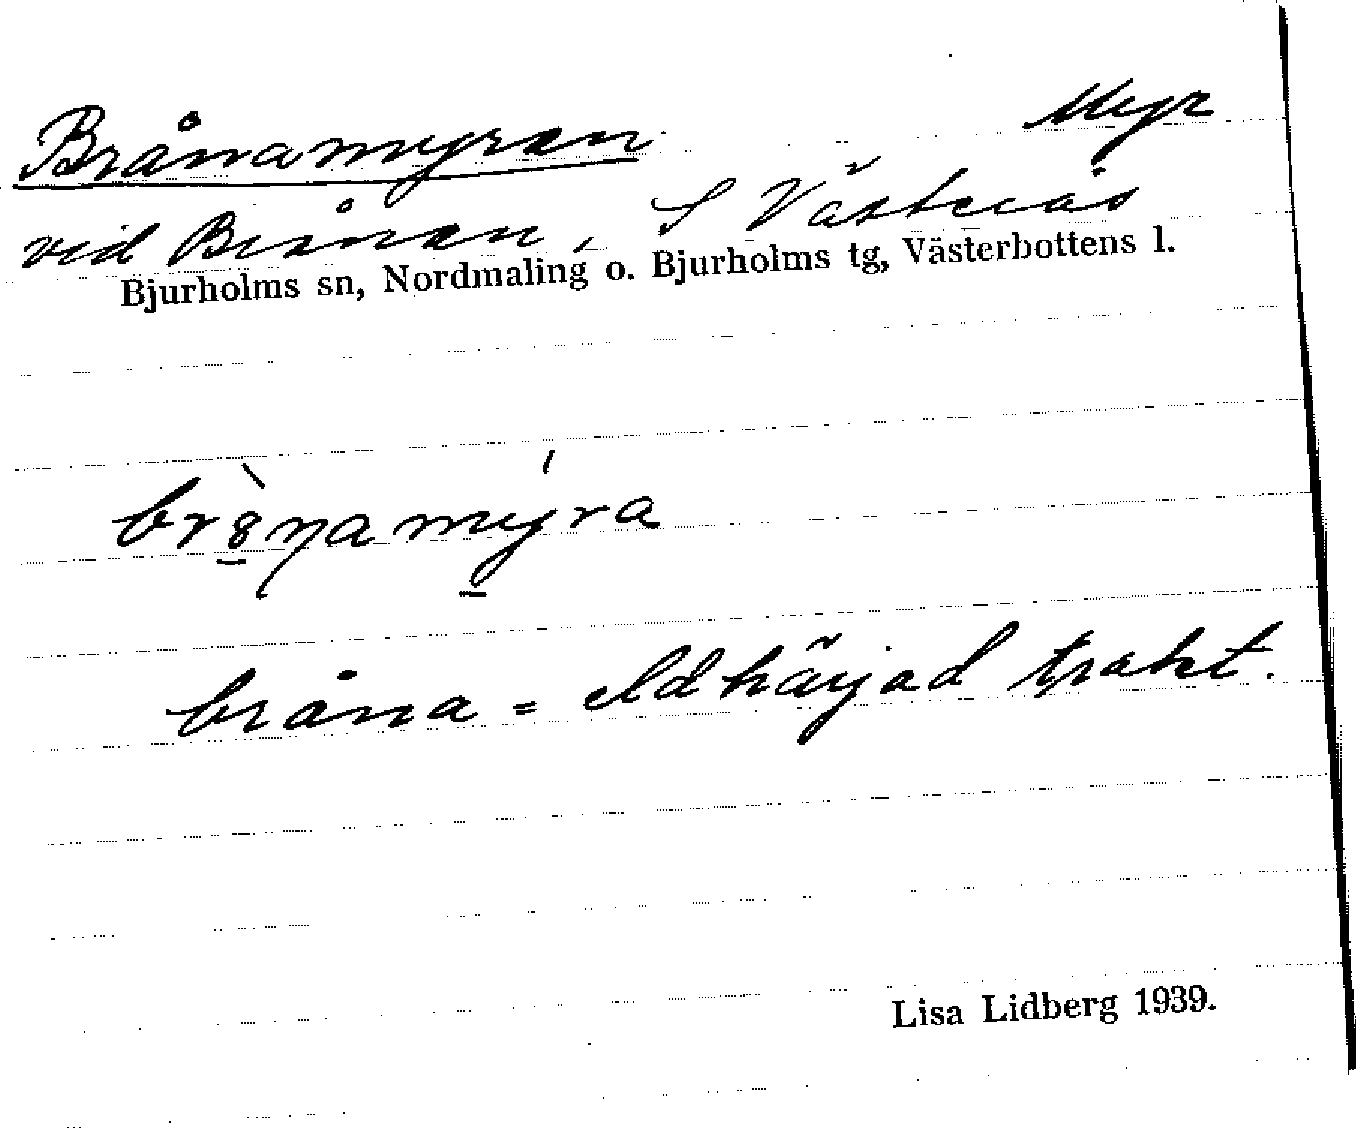 Brånamyren Myr
vid Brånan, S Västerås
Bjurholms sn, Nordmaling o. Bjurholms tg, Västerbottens l.
br8̱̀ŋamý̱ra
bråna = eldhärjad trakt.
Lisa Lidberg 1939.